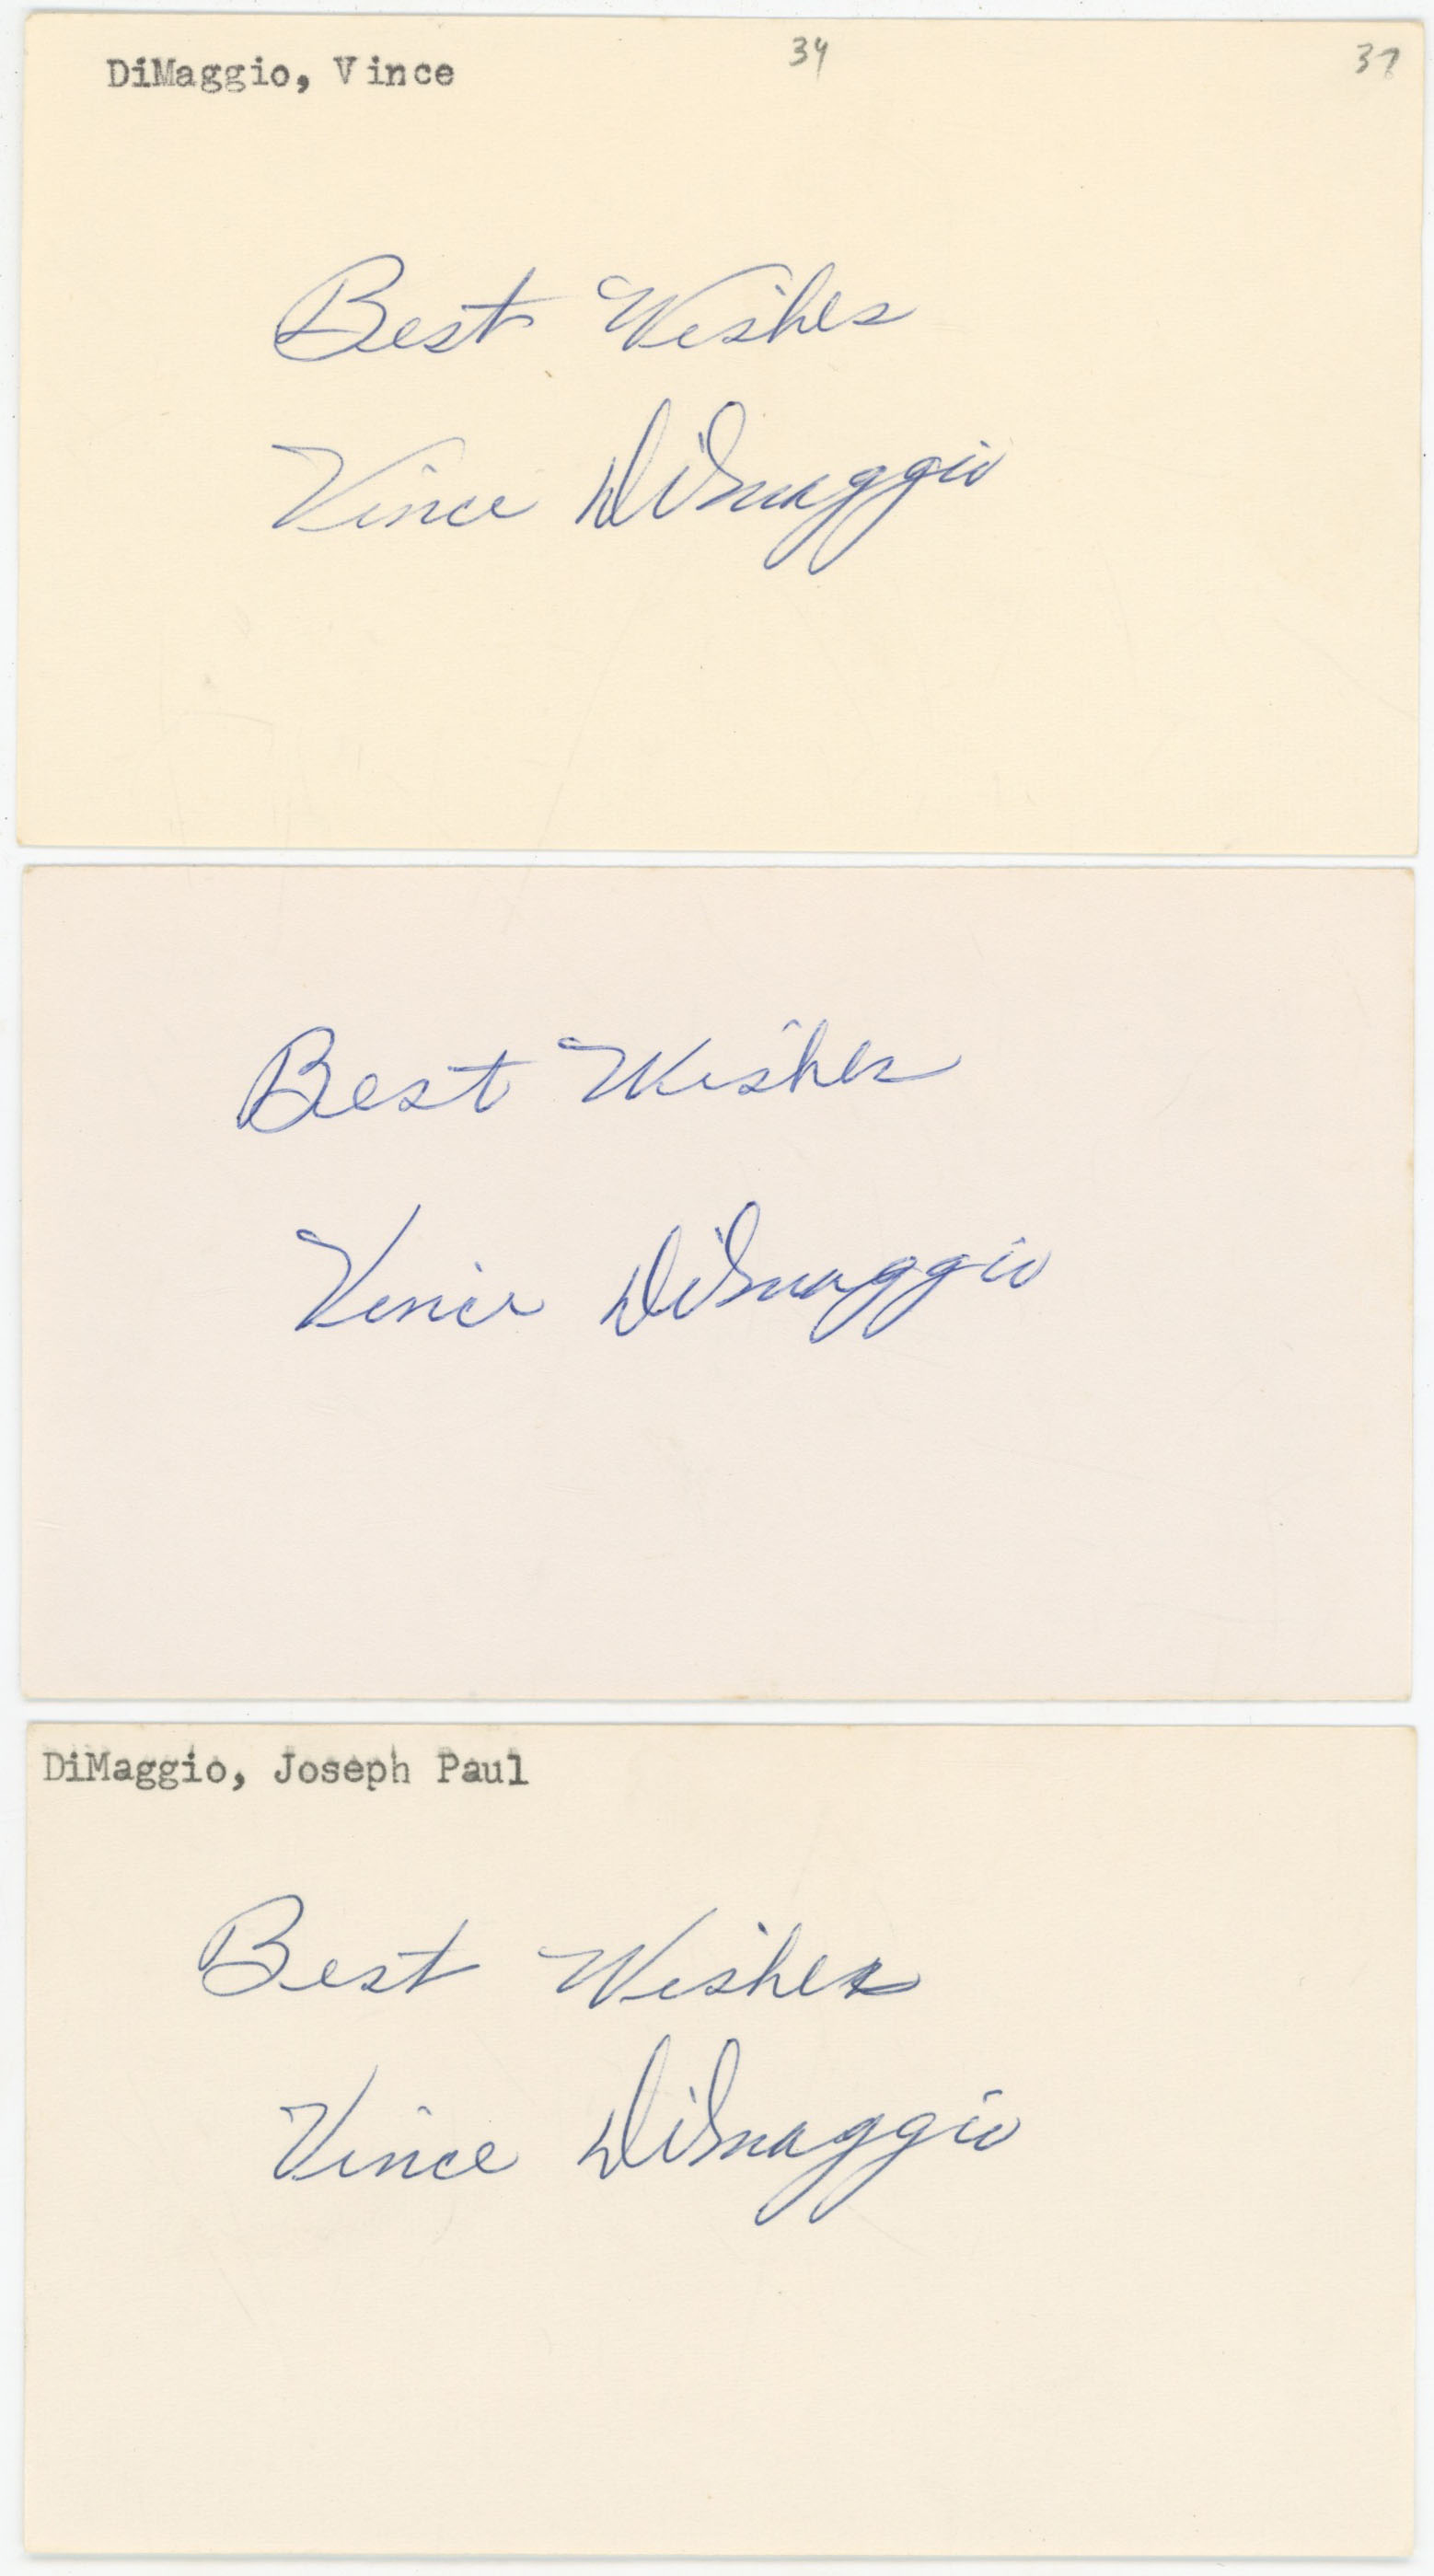 DiMaggio, Vince 34 37
Best Wishes
Vince DiMaggio
Best Wishes
Vince DiMaggio
DiMaggio, Joseph Paul
Best Wishes
Vince DiMaggio